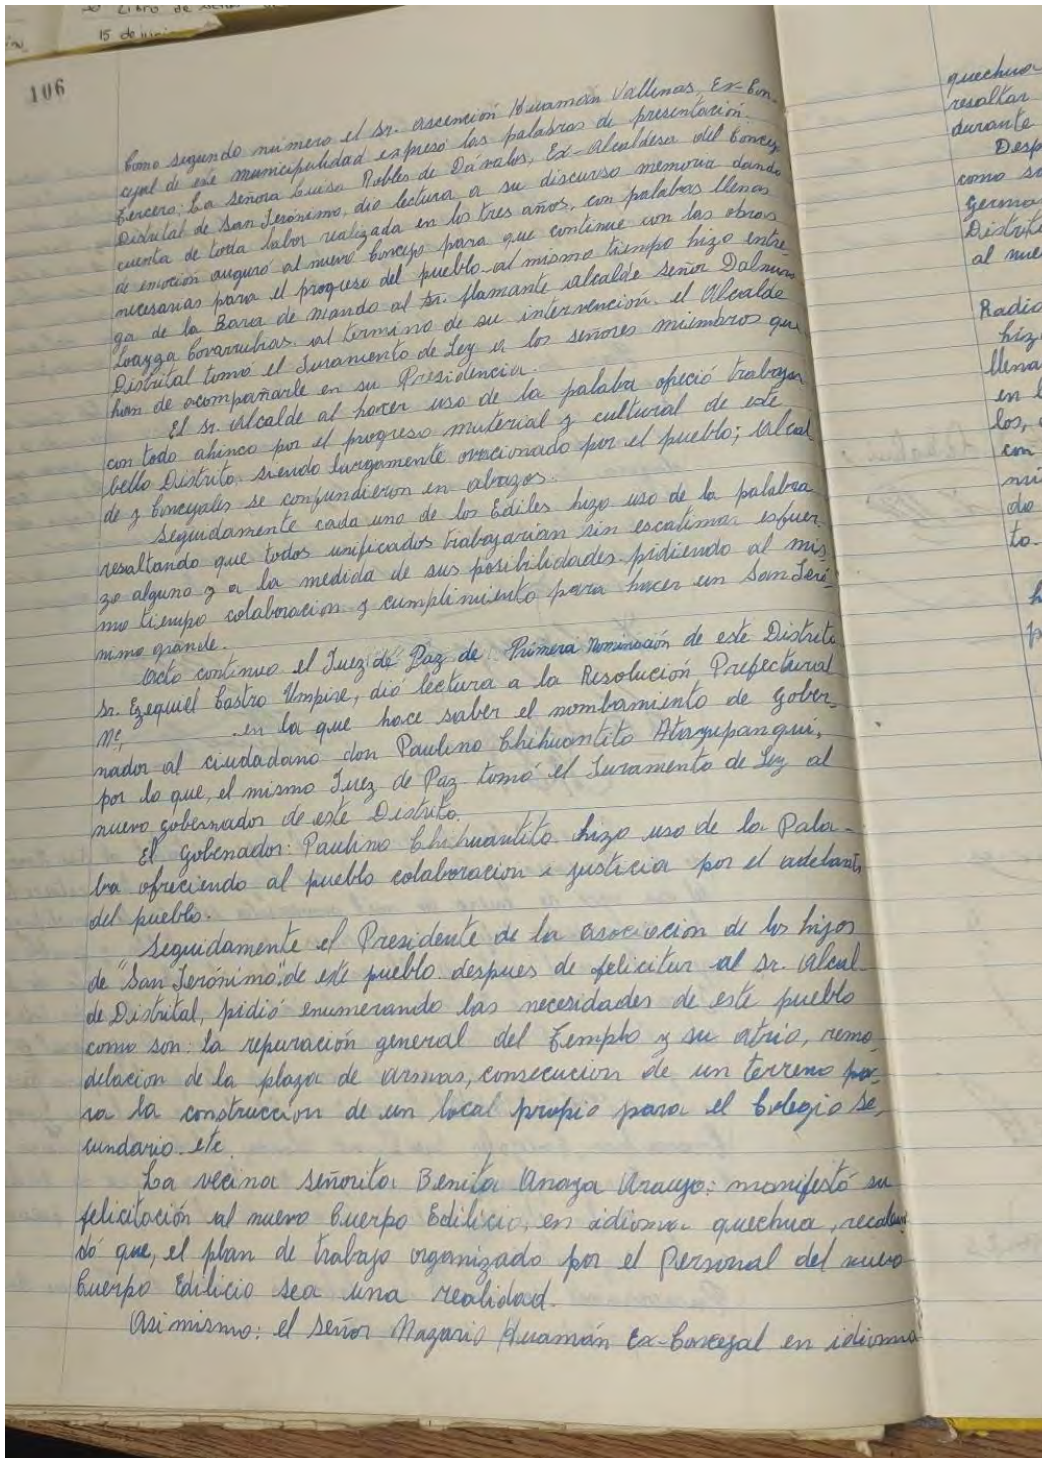 Libro de
15 de juni
106
Como segundo número el Sr. Ascención Huamán Vallenas, Ex-Con-
cejal de este municipalidad expresó las palabras de presentación.
Tercero: La Señora Luisa Robles de Dávalos, Ex-Alcaldesa del Concejo
Distrital de San Jerónimo, dio lectura a su discurso memoria dando
cuenta de toda labor realizada en los tres años, con palabras llenas
de emoción auguró al nuevo Concejo para que continue con las obras
necesarias para el progreso del pueblo al mismo tiempo hizo entre-
ga de la Bara de mando al Sr. flamante alcalde señor
Loayza Covarrubias. al termino de su intervención. el Alcalde
Distrital tomo el Juramento de Ley a los señores miembros que
han de acompañarle en su Presidencia.
El Sr. Alcalde al hacer uso de la palaba ofreció trabajar
con todo ahinco por el progreso material y cultural de este
bello Distrito. siendo largamente ovacionado por el pueblo; Alcal
de y Concejales se confundieron en abrazos.
Seguidamente cada uno de los Ediles hizo uso de la palabra
resaltando que todos unificados trabajarian sin escatimar esfuer-
zo alguno y a la medida de sus posibilidades pidiendo al mis-
mo tiempo colaboracion y cumplimiento para hacer un San Jeró-
nimo grande.
Acto continuo el Juez de Paz de Primera Nominación de este Distrito
Sr. Ezequiel Castro Umpire, dió lectura a la Resolución Prefectural
Nº, en la que hace saber el nombamiento de gober-
nador al ciudadano don Paulino Chihuantito Atayupanqui,
por lo que, el mismo Juez de Paz tomó el Juramento de Ley al
nuevo gobernador de este Distrito.
El gobenador: Paulino Chihuantito hizo uso de la Pala-
bra ofreciendo al pueblo colaboracion e justicia por el adelanto
del pueblo.
Seguidamente el Presidente de la asociocion de los hijos
de "San Jerónimo" de este pueblo despues de felicitar al Sr. Alcal-
de Distrital, pidió enumerando las necesidades de este pueblo
como son: la reparación general del Templo y su atrio, remo-
delacion de la plaza de armas, consecucion de un terreno pa-
ra la construccion de un local propio para el Colegio Se-
cundario. etc.
La vecina señorita Benita Anaya Araujo: manifestó su
felicitación al nuevo Cuerpo Edilicio, en idioma quechua, recalcan
dó que, el plan de trabajo organizado por el Personal del nuevo
Cuerpo Edilicio sea una realidad.
Asi mismo: el señor Nazario Huamán Ex-Concejal en idioma
quechua
resaltar
durante
Desp
como
germa
Distrit
al nue
Radio
hizo
llena
en l
los,
con
mi
do
to-
h
p